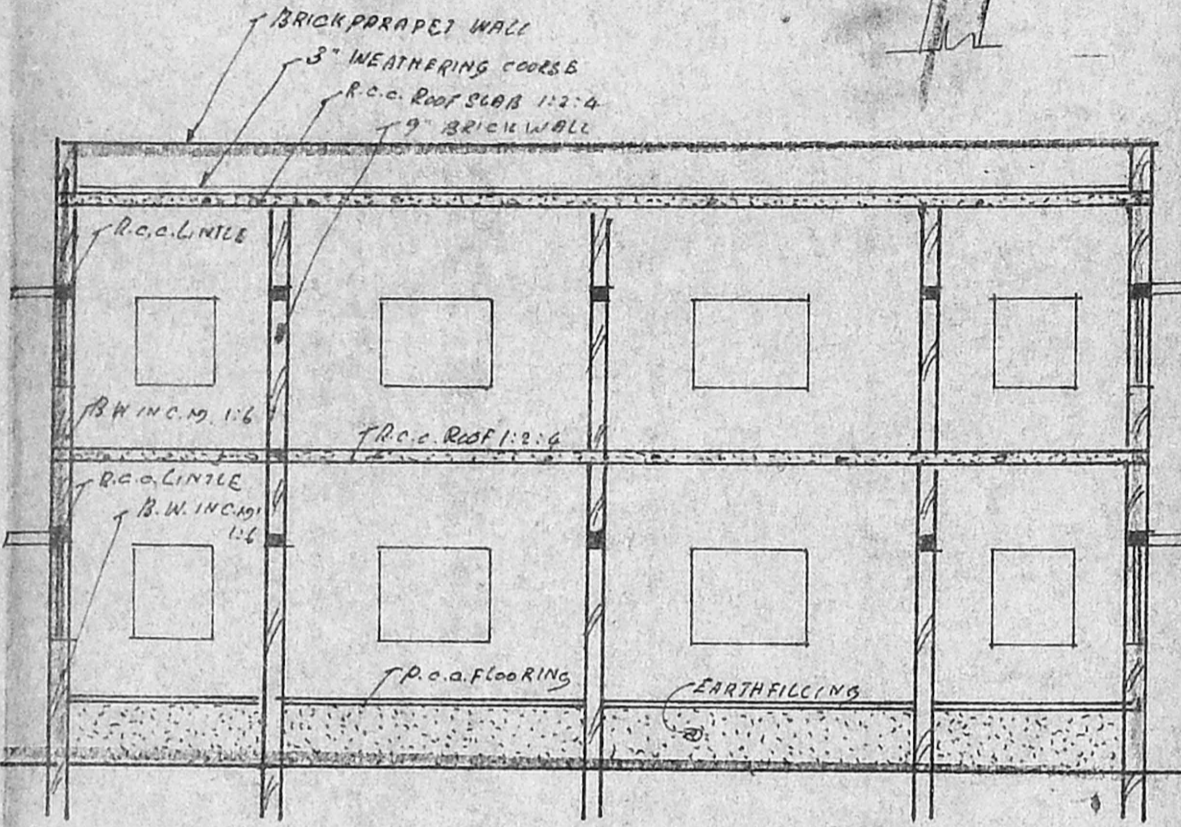 BRICK PARAPET WALL
3" WEATHERING COORSE
R.C.C. ROOF SLAB 1:2:4
9" BRICK WALL
R.C.C. LINTLE
B.W IN C.M. 1:6
R.C.C. ROOF 1:2:4
R.C.C. LINTLE
B.W. IN C.M.
1:6
P.C.C. FLOORING
EARTHFILLING